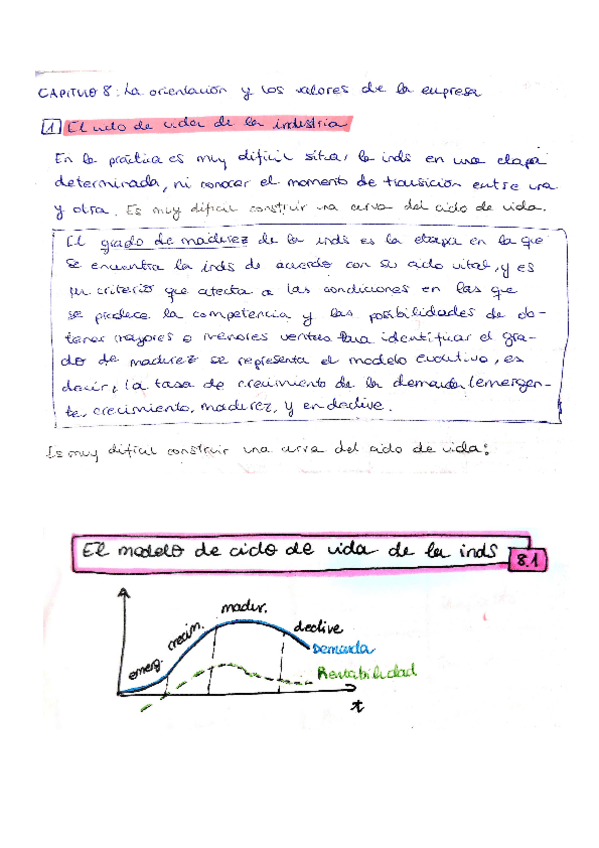 CAPITULO 8: La orientación y los valores de la empresa
1 El ciclo de vida de la industria
En la práctica es muy difícil situar la inds en una etapa
determinada, ni conocer el momento de transición entre una
y otra. Es muy difícil construir una curva del ciclo de vida.
El grado de madurez de la inds es la etapa en la que
se encuentra la inds de acuerdo con su ciclo vital, y es
un criterio que afecta a las condiciones en las que
se produce la competencia y las posibilidades de ob-
tener mayores o menores ventas. Para identificar el gra-
do de madurez se representa el modelo evolutivo, es
decir, la tasa de crecimiento de la demanda (emergen-
te, crecimiento, madurez, y en declive.
Es muy difícil construir una curva del ciclo de vida:
El modelo de ciclo de vida de la inds 8.1
emerg. crecim. madur. declive
Demanda
Rentabilidad
t